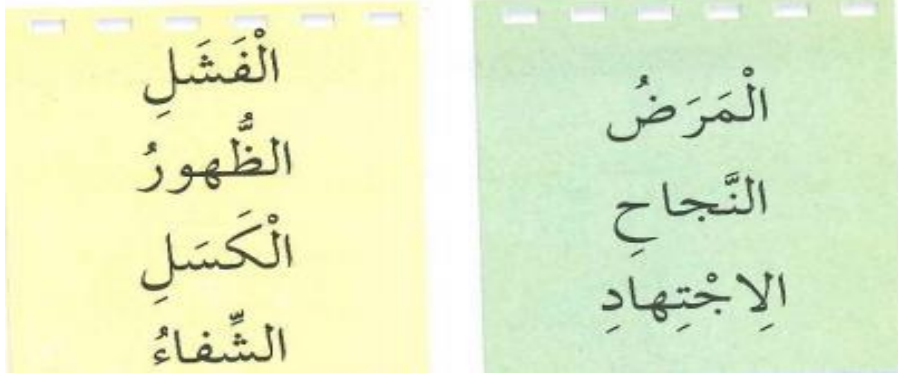 الْمَرَضُ
النَّجاحِ
الِاجْتِهادِ
الْفَشَلِ
الظُّهورُ
الْكَسَلِ
الشِّفاءُ